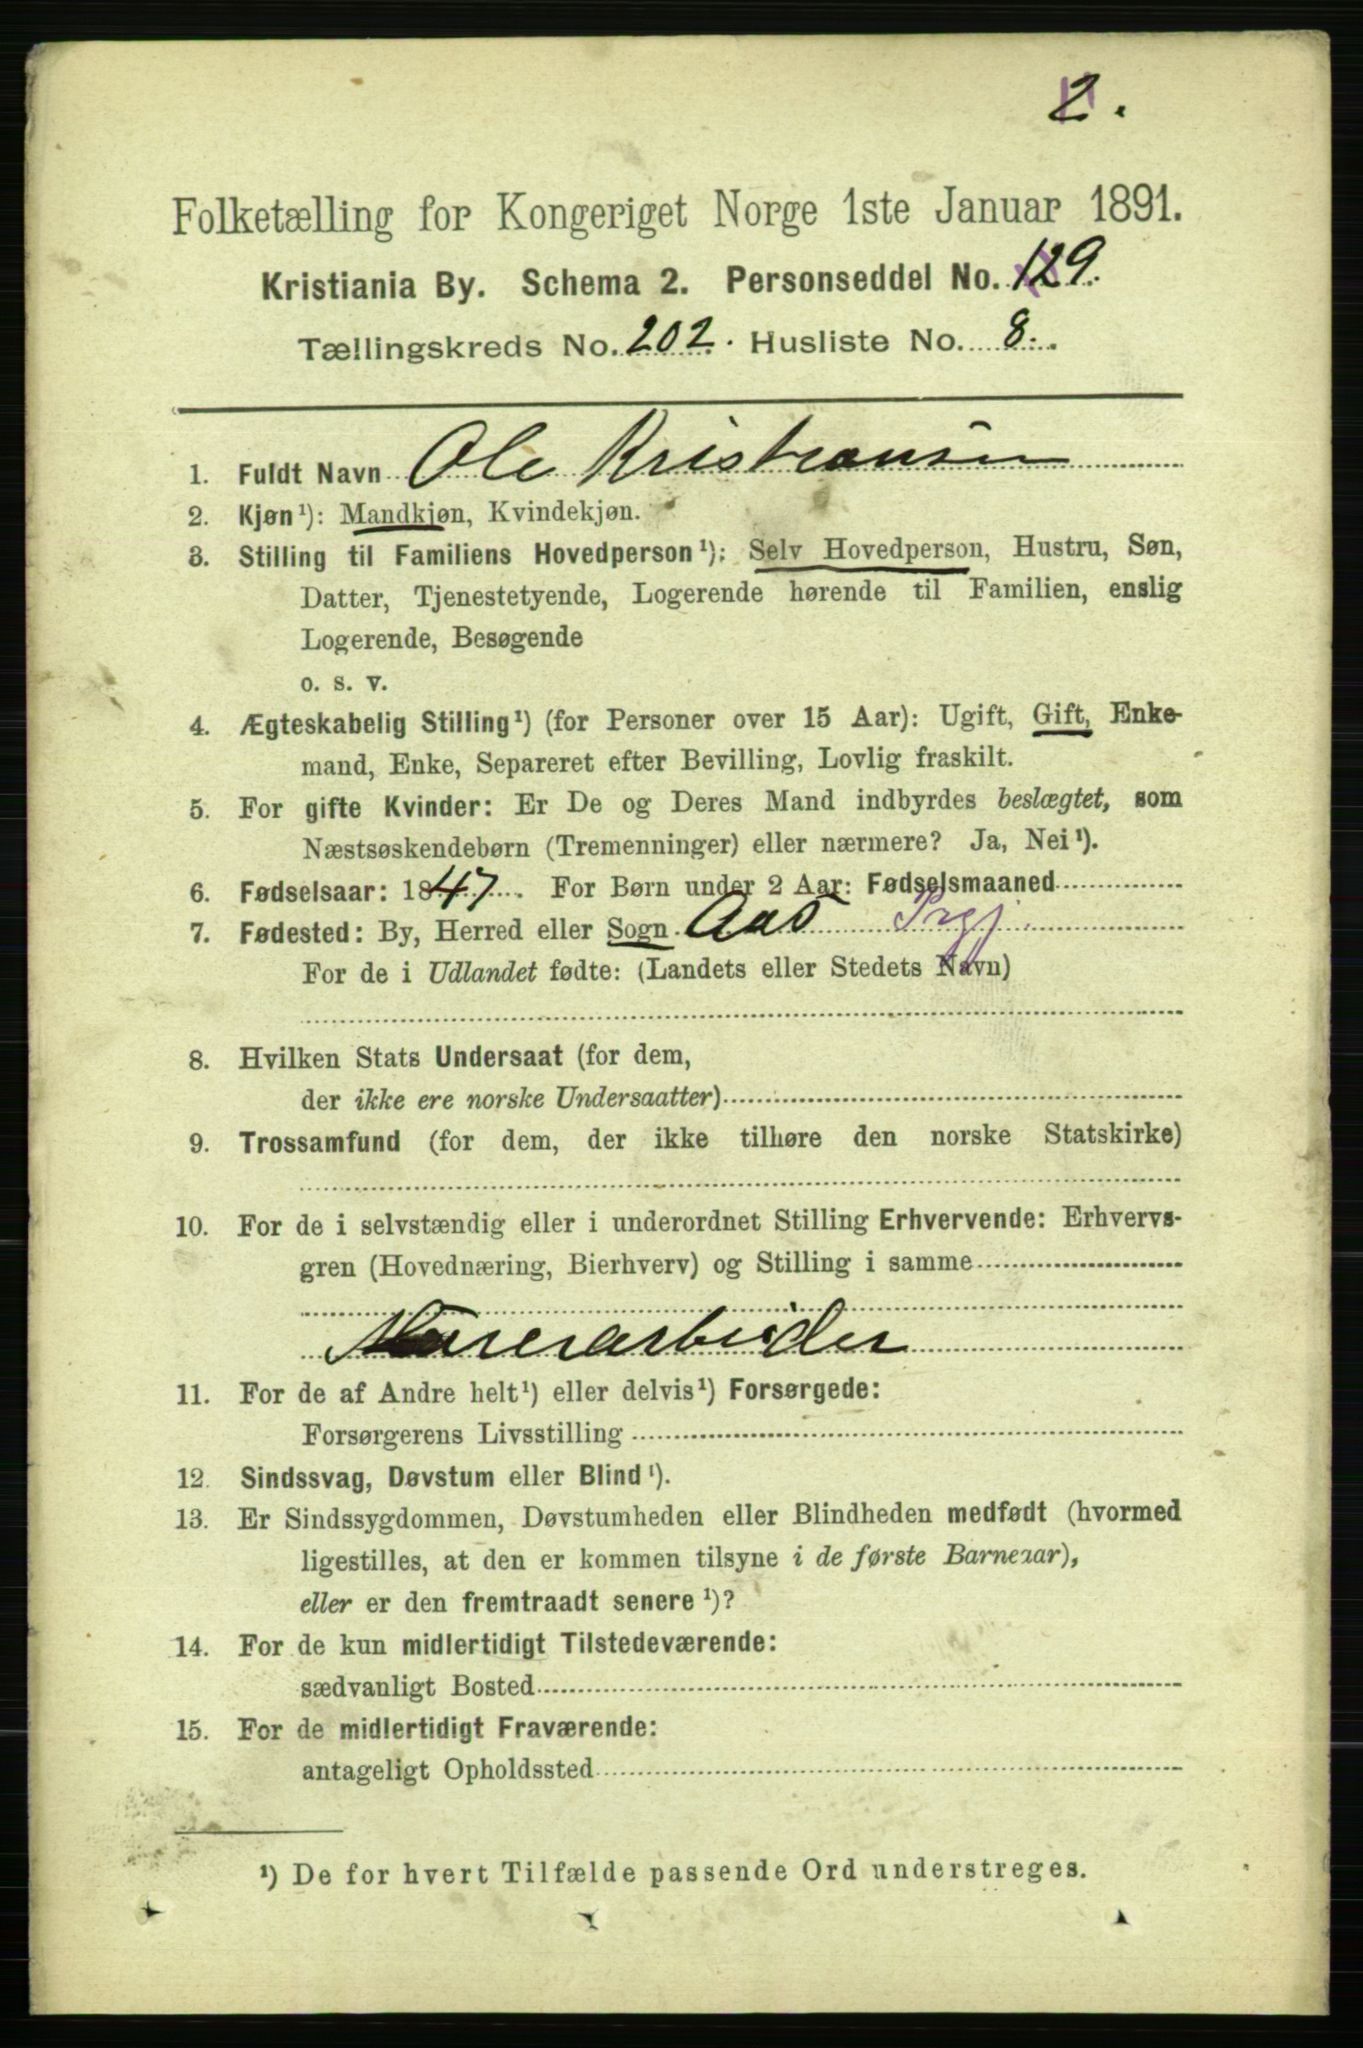 2.
Folketælling for Kongeriget Norge 1ste Januar 1891.
Kristiania By. Schema 2. Personseddel No. 129.
Tællingskreds No. 202. Husliste No. 8.
1. Fuldt Navn Ole Kristiansen
2. Kjøn¹): Mandkjøn, Kvindekjøn.
3. Stilling til Familiens Hovedperson¹): Selv Hovedperson, Hustru, Søn,
Datter, Tjenestetyende, Logerende hørende til Familien, enslig
Logerende, Besøgende
o. s. v.
4. Ægteskabelig Stilling¹) (for Personer over 15 Aar): Ugift, Gift, Enke-
mand, Enke, Separeret efter Bevilling, Lovlig fraskilt.
5. For gifte Kvinder: Er De og Deres Mand indbyrdes beslægtet, som
Næstsøskendebørn (Tremenninger) eller nærmere? Ja, Nei¹).
6. Fødselsaar: 1847. For Børn under 2 Aar: Fødselsmaaned
7. Fødested: By, Herred eller Sogn Aas Prgj.
For de i Udlandet fødte: (Landets eller Stedets Navn)
8. Hvilken Stats Undersaat (for dem,
der ikke ere norske Undersaatter)
9. Trossamfund (for dem, der ikke tilhøre den norske Statskirke)
10. For de i selvstændig eller i underordnet Stilling Erhvervende: Erhvervs-
gren (Hovednæring, Bierhverv) og Stilling i samme
Murerarbeider
11. For de af Andre helt¹) eller delvis¹) Forsørgede:
Forsørgerens Livsstilling
12. Sindssvag, Døvstum eller Blind¹).
13. Er Sindssygdommen, Døvstumheden eller Blindheden medfødt (hvormed
ligestilles, at den er kommen tilsyne i de første Barneaar),
eller er den fremtraadt senere¹)?
14. For de kun midlertidigt Tilstedeværende:
sædvanligt Bosted
15. For de midlertidigt Fraværende:
antageligt Opholdssted
¹) De for hvert Tilfælde passende Ord understreges.